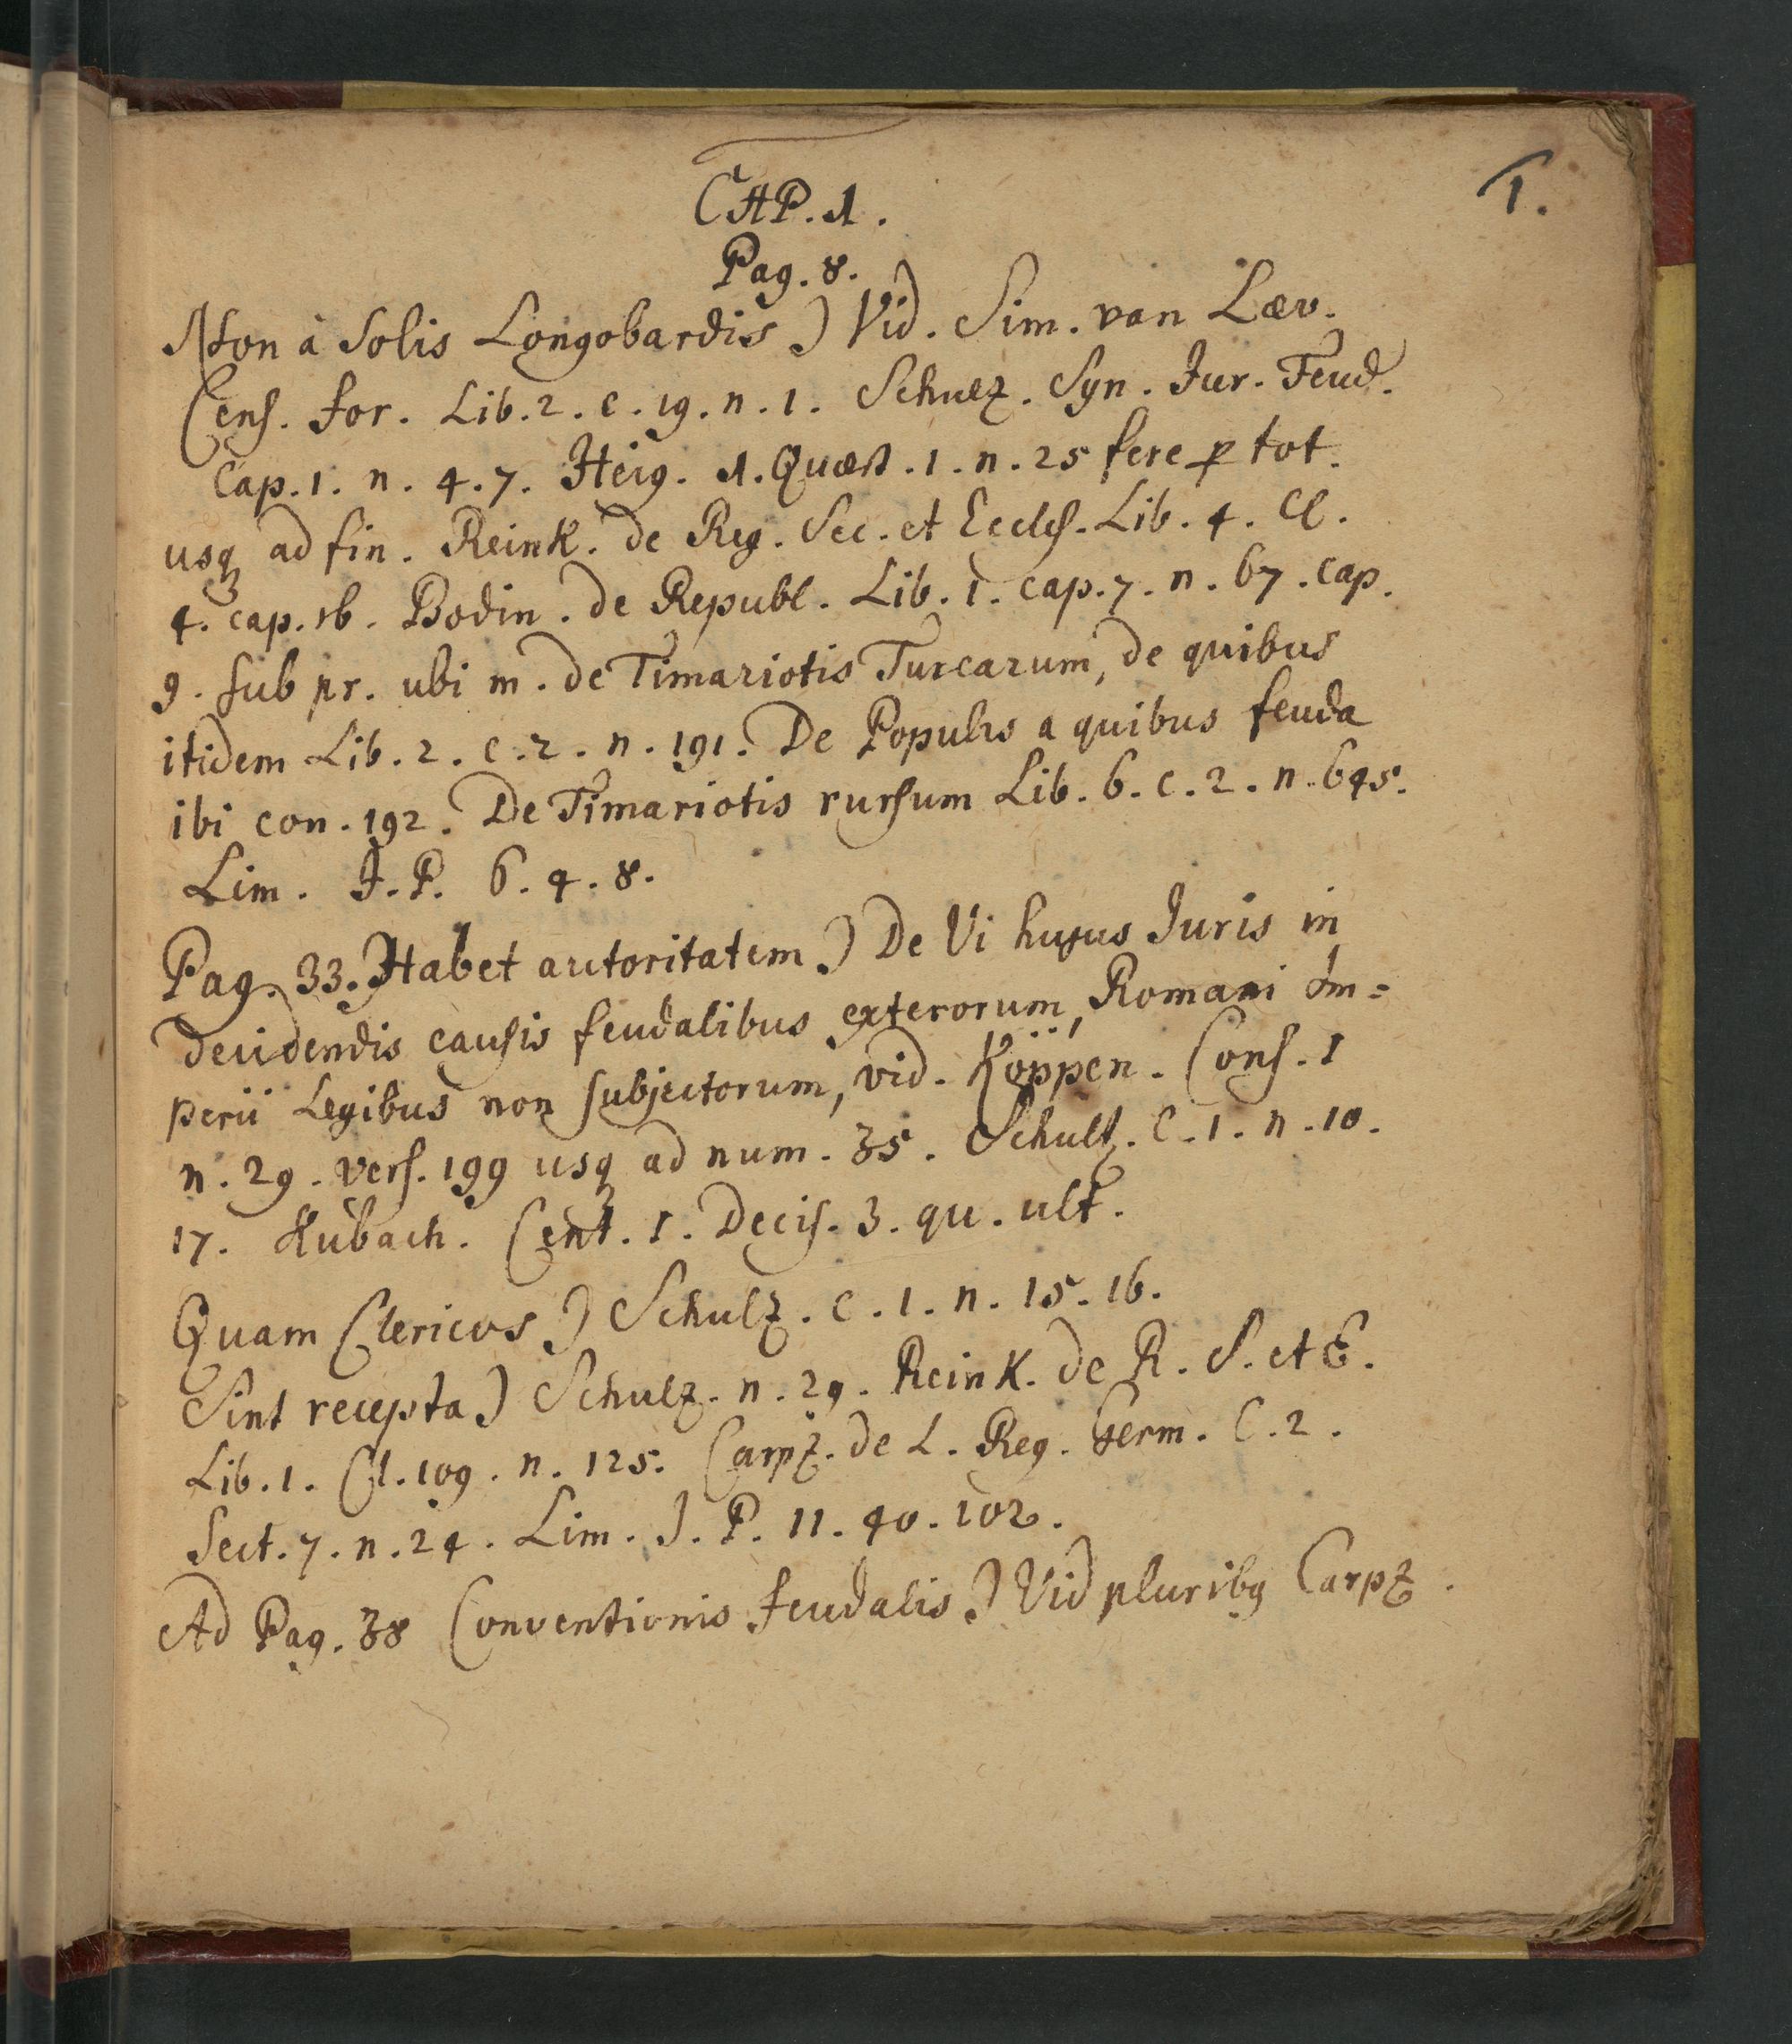 1.
CAP. 1.
Pag. 8.
Non à Solis Longobardis) Vid. Sim. van Læv.
Cens. For. Lib. 2. c. 19. n. 1. Schulz. Syn. Jur. Feud.
Cap. 1. n. 4. 7. Heig. 1. Quæst. 1. n. 25 fere p tot.
usq ad fin. Reink. de Reg. Sec. et Eccles. Lib. 4. Cl.
4. cap. 16. Bodin. de Republ. Lib. 1. cap. 7. n. 67. cap.
9. sub pr. ubi m. de Timariotis Turcarum, de quibus
itidem Lib. 2. c. 2. n. 191. De Populis a quibus feuda
ibi con. 192. De Timariotis rursum Lib. 6. c. 2. n. 645.
Lim. J. P. 6. 4. 8.
Pag. 33. Habet autoritatem) De Vi hujus Juris in
decidendis causis feudalibus exterorum, Romani Im=
perii Legibus non subjectorum, vid. Köppen. Cons. 1
n. 29. vers. 199 usq ad num. 35. Schultz. C. 1. n. 10.
17. Hubach. Cent. 1. Decis. 3. qu. ult.
Quam Clericos) Schulz. c. 1. n. 15. 16.
Sint recepta) Schulz. n. 29. Reink. de R. S. et E.
Lib. 1. Cl. 109. n. 125. Carpz. de L. Reg. Germ. C. 2.
Sect. 7. n. 24. Lim. J. P. 11. 40. 102.
Ad Pag. 38 Conventionis feudalis) Vid pluribq Carpz.